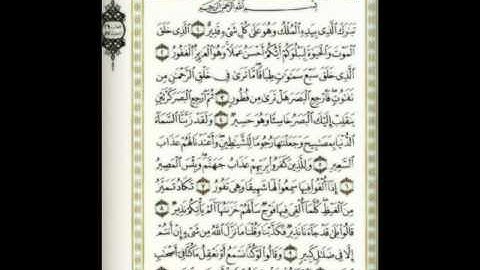 بِسْمِ اللَّهِ الرَّحْمَٰنِ الرَّحِيمِ
تَبَارَكَ الَّذِي بِيَدِهِ الْمُلْكُ وَهُوَ عَلَىٰ كُلِّ شَيْءٍ قَدِيرٌ ۝١ الَّذِي خَلَقَ
الْمَوْتَ وَالْحَيَاةَ لِيَبْلُوَكُمْ أَيُّكُمْ أَحْسَنُ عَمَلًا وَهُوَ الْعَزِيزُ الْغَفُورُ ۝٢
الَّذِي خَلَقَ سَبْعَ سَمَاوَاتٍ طِبَاقًا مَّا تَرَىٰ فِي خَلْقِ الرَّحْمَٰنِ مِن
تَفَاوُتٍ فَارْجِعِ الْبَصَرَ هَلْ تَرَىٰ مِن فُطُورٍ ۝٣ ثُمَّ ارْجِعِ الْبَصَرَ كَرَّتَيْنِ
يَنقَلِبْ إِلَيْكَ الْبَصَرُ خَاسِئًا وَهُوَ حَسِيرٌ ۝٤ وَلَقَدْ زَيَّنَّا السَّمَاءَ
الدُّنْيَا بِمَصَابِيحَ وَجَعَلْنَاهَا رُجُومًا لِّلشَّيَاطِينِ وَأَعْتَدْنَا لَهُمْ عَذَابَ
السَّعِيرِ ۝٥ وَلِلَّذِينَ كَفَرُوا بِرَبِّهِمْ عَذَابُ جَهَنَّمَ وَبِئْسَ الْمَصِيرُ
۝٦ إِذَا أُلْقُوا فِيهَا سَمِعُوا لَهَا شَهِيقًا وَهِيَ تَفُورُ ۝٧ تَكَادُ تَمَيَّزُ
مِنَ الْغَيْظِ كُلَّمَا أُلْقِيَ فِيهَا فَوْجٌ سَأَلَهُمْ خَزَنَتُهَا أَلَمْ يَأْتِكُمْ نَذِيرٌ ۝٨
قَالُوا بَلَىٰ قَدْ جَاءَنَا نَذِيرٌ فَكَذَّبْنَا وَقُلْنَا مَا نَزَّلَ اللَّهُ مِن شَيْءٍ إِنْ أَنتُمْ
إِلَّا فِي ضَلَالٍ كَبِيرٍ ۝٩ وَقَالُوا لَوْ كُنَّا نَسْمَعُ أَوْ نَعْقِلُ مَا كُنَّا فِي أَصْحَابِ